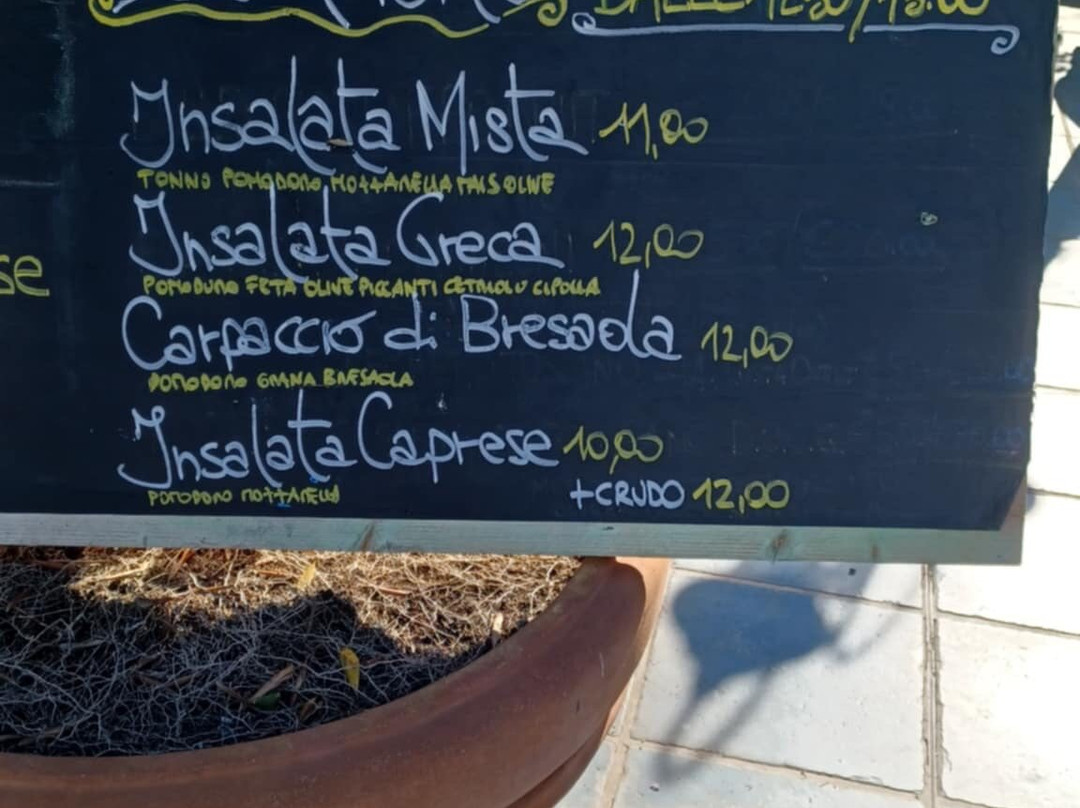 DALLE 12:30/15:00
Insalata Mista 11,00
TONNO POMODORO MOZZARELLA MAIS OLIVE
Insalata Greca 12,00
POMODORO FETA OLIVE PICCANTI CETRIOLO CIPOLLA
se
Carpaccio di Bresaola 12,00
POMODORO GRANA BRESAOLA
Insalata Caprese 10,00
POMODORO MOZZARELLA
+CRUDO 12,00